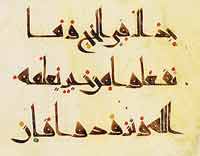 جدال في الحج وما
تفعلوا من خير يعلمه
الله وتزودوا فإن